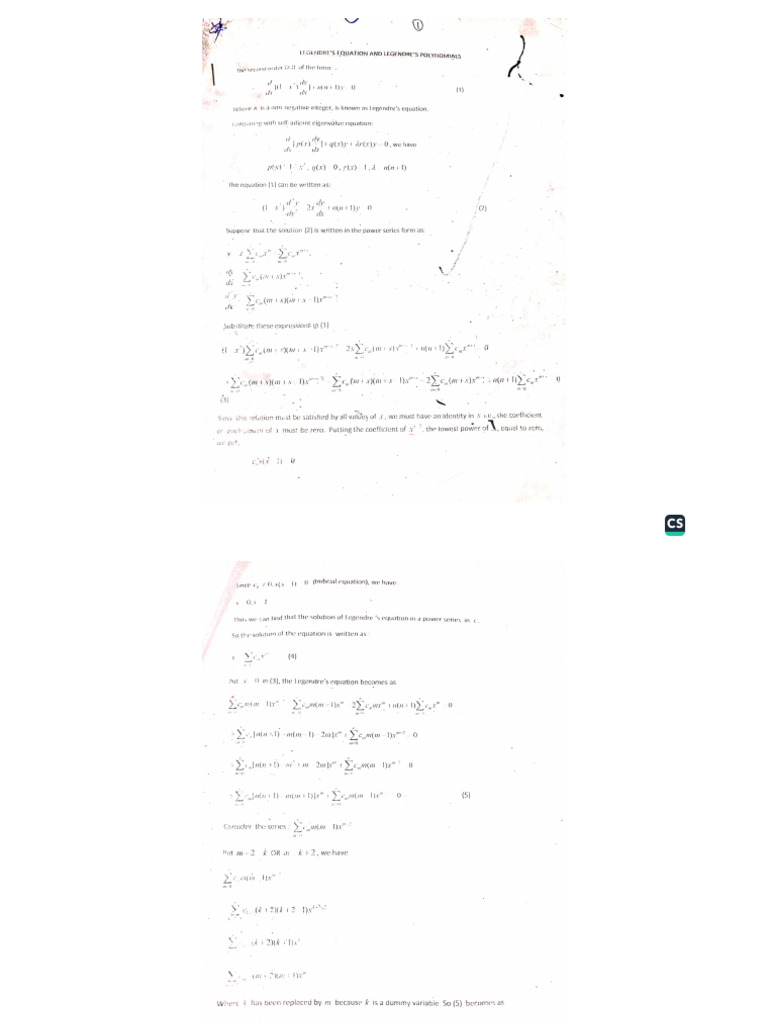 1
LEGENDRE'S EQUATION AND LEGENDRE'S POLYNOMIALS
The second order O.D. of the form:
d/dx [(1 x²) dy/dx] + n(n+1)y 0 (1)
Where n is a non negative integer, is known as Legendre's equation.
Comparing with self adjoint eigenvalue equation:
d/dx [p(x) dy/dx] + q(x)y + λr(x)y = 0, we have
p(x) 1 x², q(x) 0, r(x) 1, λ n(n+1)
The equation [1] can be written as:
(1 x²) d²y/dx² 2x dy/dx + n(n+1)y 0 (2)
Suppose that the solution (2) is written in the power series form as:
y x Σ cₘxᵐ Σ cₘxᵐ⁺ˢ,
dy/dx Σ cₘ(m+s)xᵐ⁺ˢ⁻¹,
d²y/dx² Σ cₘ(m+s)(m+s-1)xᵐ⁺ˢ⁻²
Substitute these expressions in (1)
(1 x²)Σ cₘ(m+s)(m+s-1)xᵐ⁺ˢ⁻² 2xΣ cₘ(m+s)xᵐ⁺ˢ⁻¹ + n(n+1)Σ cₘxᵐ⁺ˢ 0
Σ cₘ(m+s)(m+s 1)xᵐ⁺ˢ⁻² Σ cₘ(m+s)(m+s 1)xᵐ⁺ˢ - 2Σ cₘ(m+s)xᵐ⁺ˢ + n(n+1)Σ cₘxᵐ⁺ˢ 0
(3)
Since this relation must be satisfied by all values of x, we must have an identity in x i.e., the coefficient
of each power of x must be zero. Putting the coefficient of xˢ⁻², the lowest power of x, equal to zero,
we get,
c₀s(s 1) 0
CS
Since c₀ ≠ 0, s(s 1) 0 (Indicial equation), we have
s 0, s 1
Thus we can find that the solution of Legendre 's equation in a power series in x.
So the solution of the equation is written as:
y Σ cₘxᵐ (4)
Put s 0 in (3), the Legendre's equation becomes as
Σ cₘm(m 1)xᵐ⁻² Σ cₘm(m-1)xᵐ 2Σ cₘmxᵐ + n(n+1)Σ cₘxᵐ 0
Σ cₘ[n(n+1) - m(m-1) - 2m]xᵐ + Σ cₘm(m-1)xᵐ⁻² 0
Σ cₘ[n(n+1) m² + m 2m]xᵐ + Σ cₘm(m-1)xᵐ⁻² 0
Σ cₘ[n(n+1) m(m+1)]xᵐ + Σ cₘm(m 1)xᵐ⁻² 0 (5)
Consider the series: Σ cₘm(m 1)xᵐ⁻²
Put m-2 k OR m k+2, we have
Σ cₘm(m 1)xᵐ⁻²
Σ (k+2)(k+2 1)xᵏ⁺²⁻²
Σ (k+2)(k+1)xᵏ
Σ (m+2)(m+1)xᵐ
Where k has been replaced by m because k is a dummy variable. So (5) becomes as